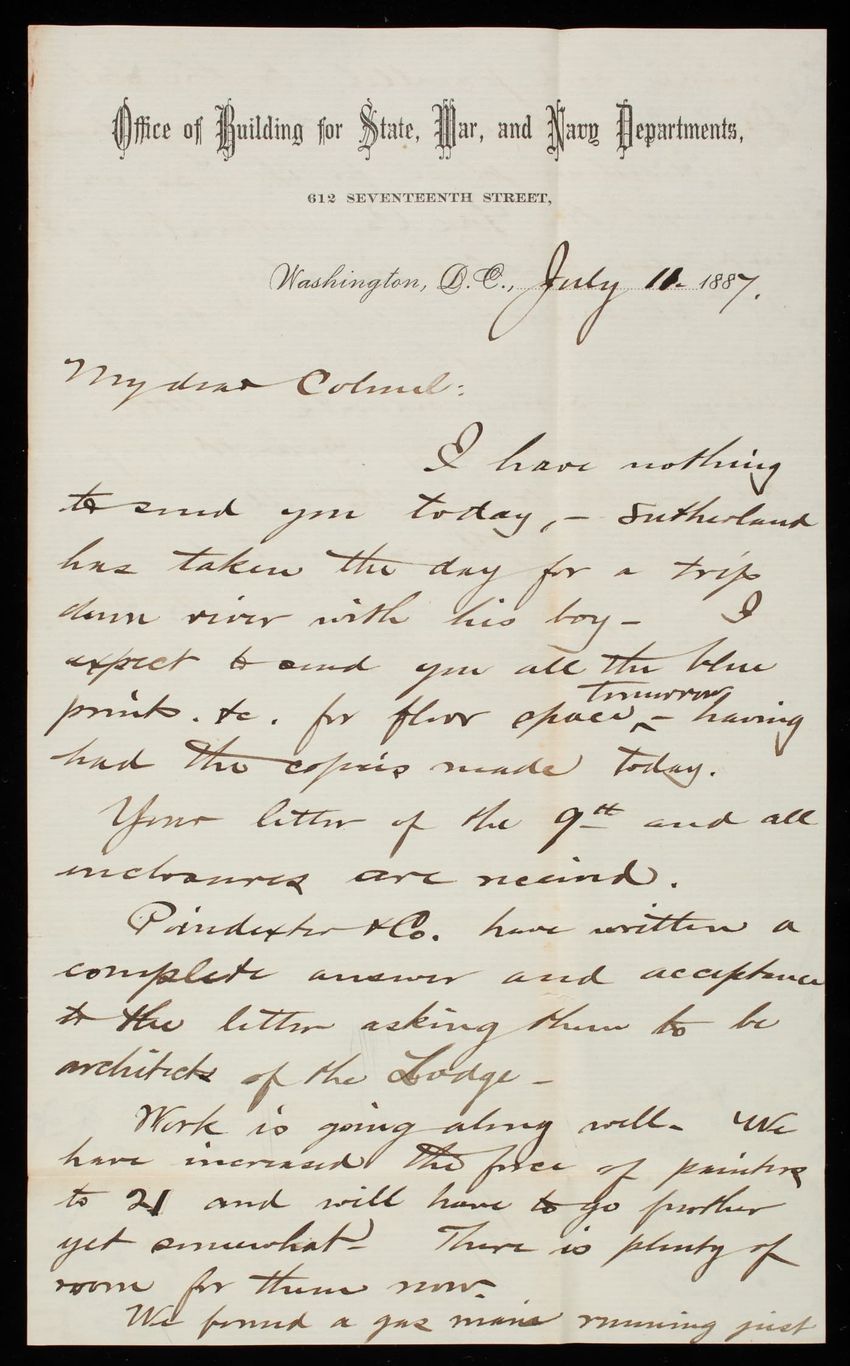 Office of Building for State, War, and Navy Departments,
612 SEVENTEENTH STREET,
Washington, D.C., July 11. 1887.
My dear Colonel:
I have nothing
to send you today, – Sutherland
has taken the day for a trip
down river with his boy – I
expect to send you all the blue
tomorrow
prints. &c. for floor space, ^ – having
had the copies made today.
Your letter of the 9th and all
inclosures are received.
Poindexter & Co. have written a
complete answer and acceptance
to the letter asking them to be
architects of the Lodge –
Work is going along well – We
have increased the force of painters
to 21 and will have to go further
yet somewhat – There is plenty of
room for them now –
We found a gas main running just